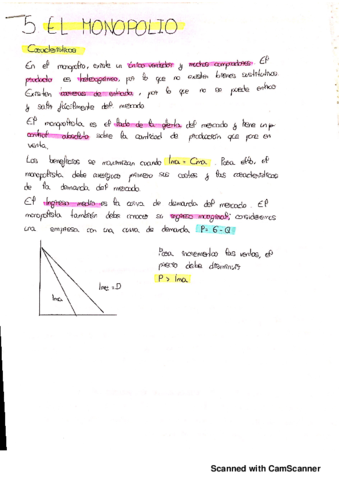 5 EL MONOPOLIO
Características
En el monopolio, existe un único vendedor y muchos compradores. El
producto es heterogéneo, por lo que no existen bienes sustitutivos
Existen barreras de entrada, por lo que no se puede entrar
y salir fácilmente del mercado
El monopolista es el lado de la oferta del mercado y tiene un
control absoluto sobre la cantidad de producción que pone en
venta.
Los beneficios se maximizan cuando Ima = Cma. Para ello, el
monopolista debe averiguar primero sus costes y las características
de la demanda del mercado.
El ingreso medio es la curva de demanda del mercado. El
monopolista también debe conocer su ingreso marginal; consideremos
una empresa con una curva de demanda P= 6-Q
Para incrementar las ventas, el
precio debe disminuir
P > Ima
Ime = D
Ima
Scanned with CamScanner